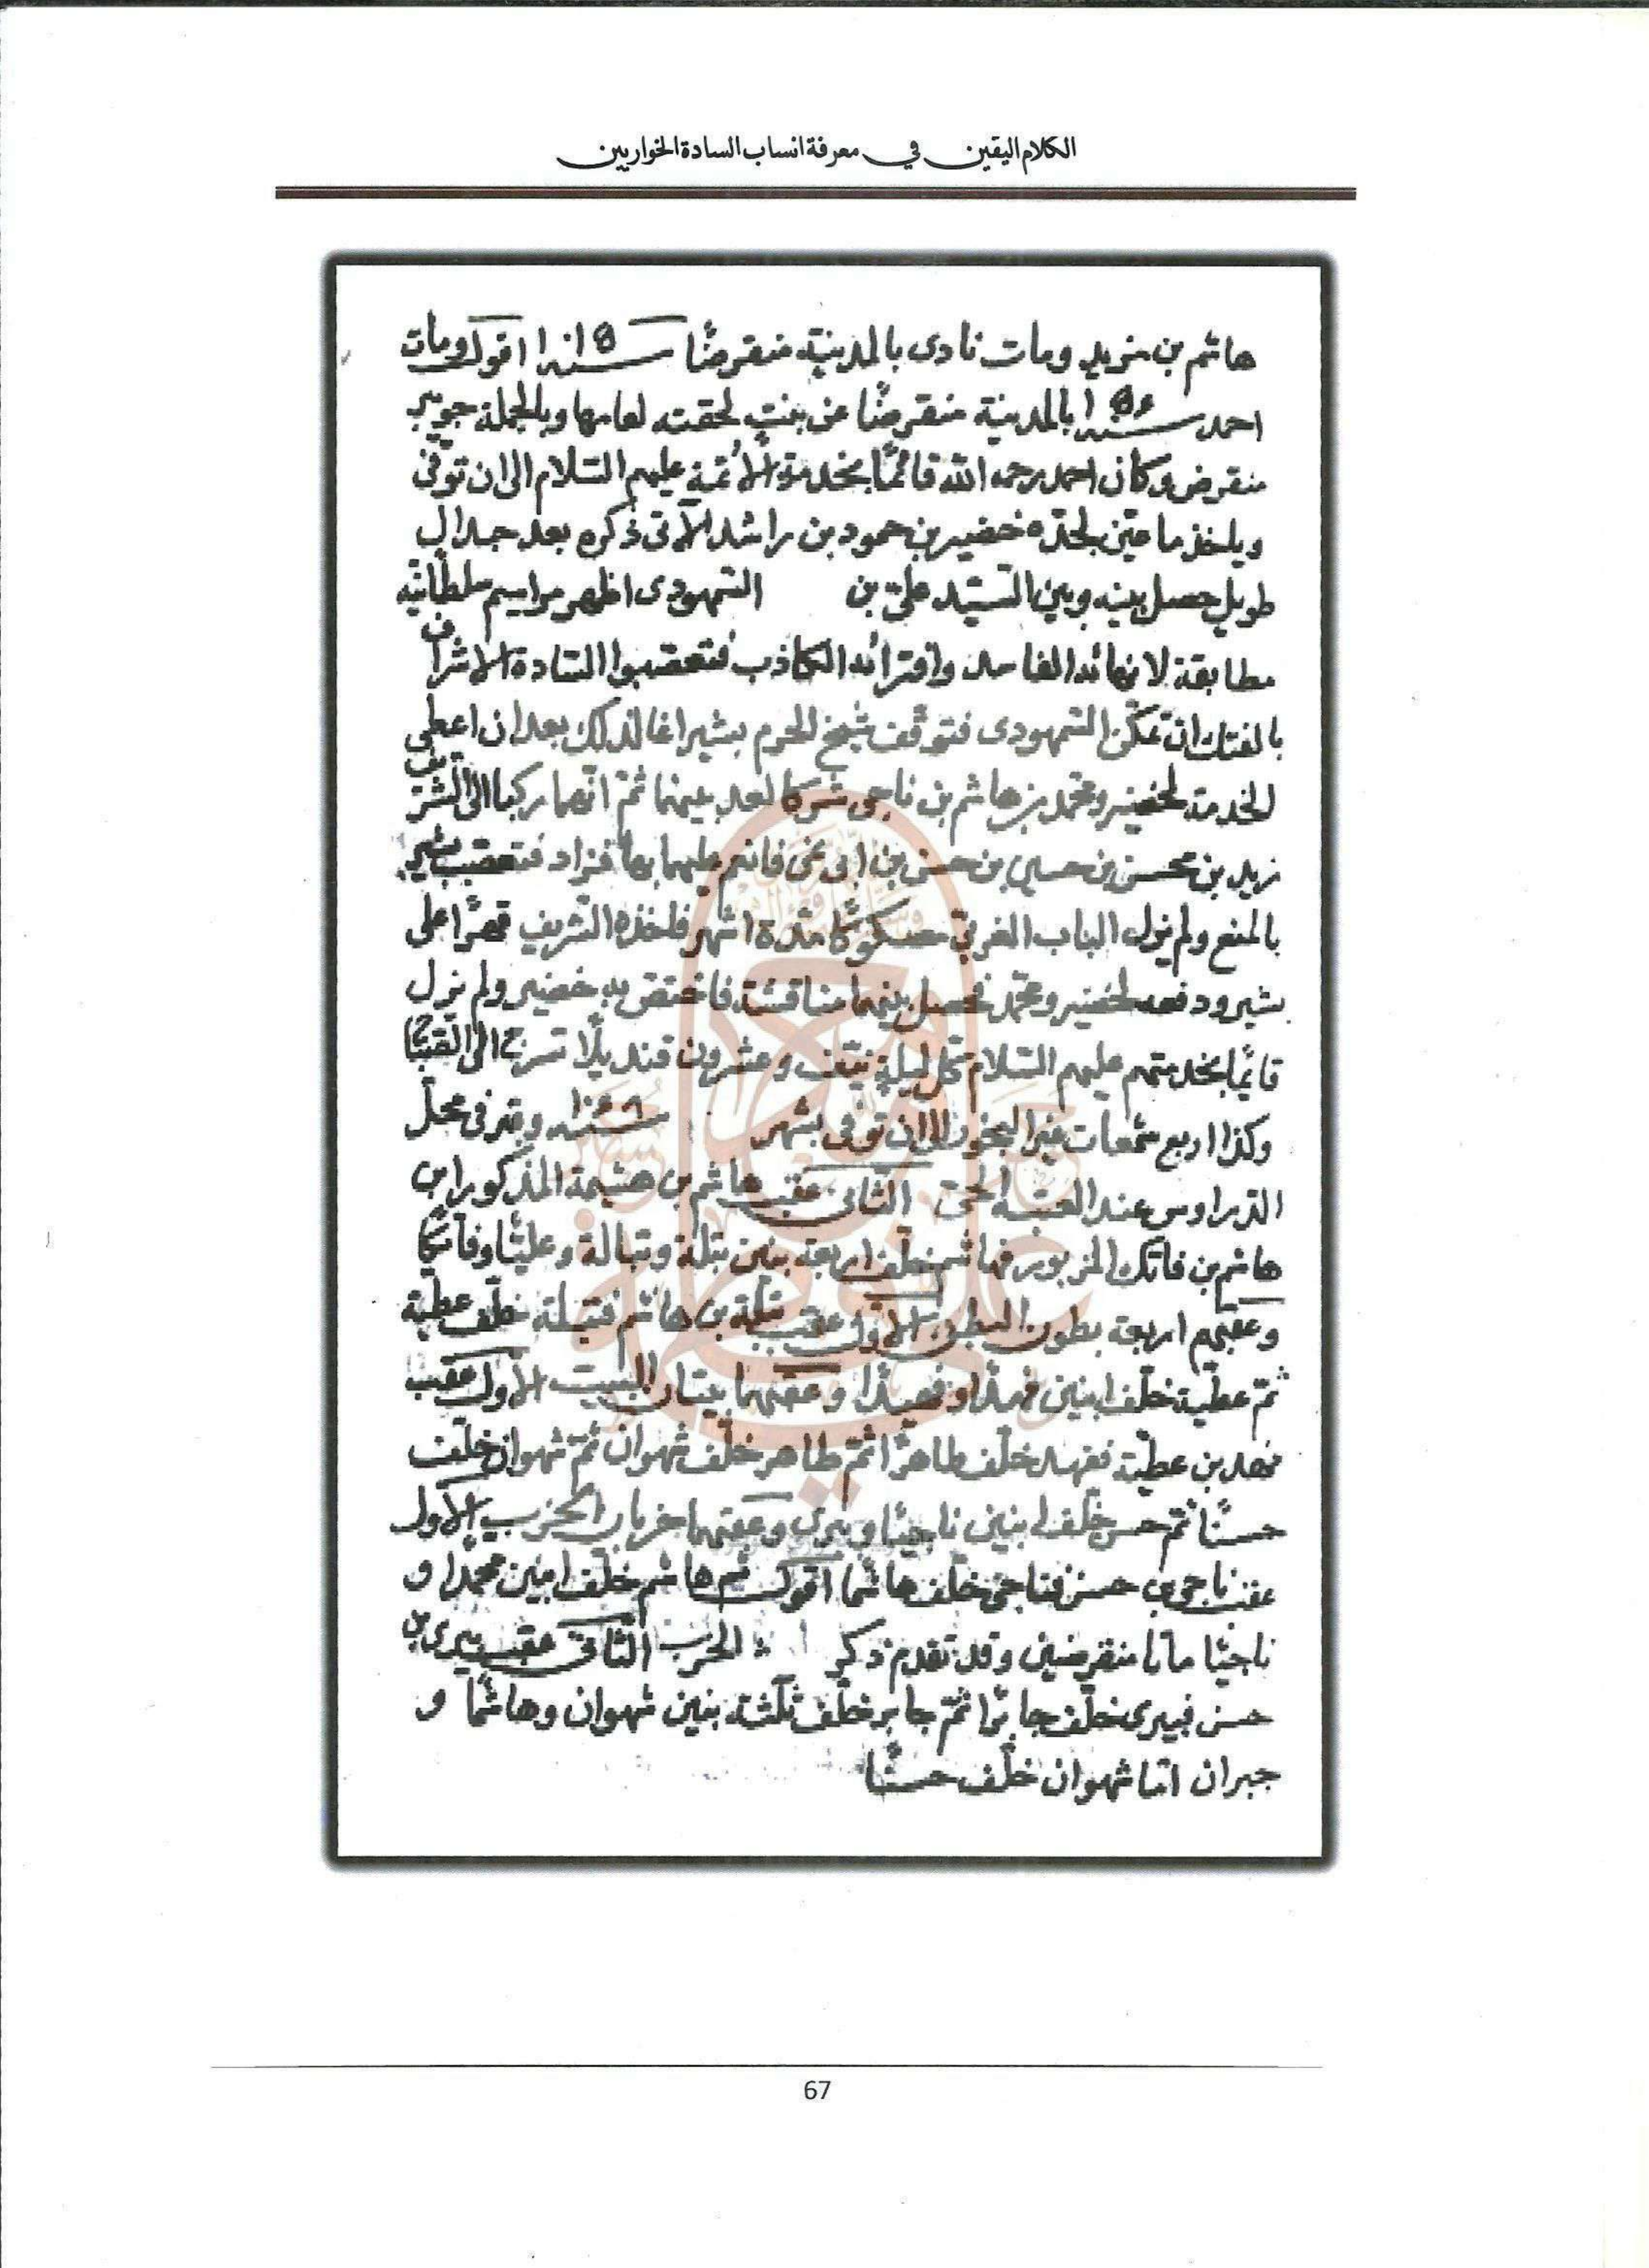 الكلام اليقين في معرفة انساب السادة الخواريين
هاشم بن مزيد ومات نادى بالمدينة منقرضًا سنة اقول ومات
احمد سنة بالمدينة منقرضًا عن بنت لحقته لعامها وبالجملة جوير
منقرض وكان احمد رحمه الله قائمًا بخدمة الأئمة عليهم السّلام الى ان توفّى
خضير بن حمود بن راشد الآتى ذكره بعد جدال
طويل حصل بينه وبين السّيّد علىّ بن السّمهودى اظهر مراسيم سلطانيّة
مطابقة الفاسد وافترائه الكاذب فتعصّبوا السّادة الاشراف
السّمهودى فتوقّف شيخ الحرم بشير اغا لذلك بعد ان اعطى
الخدمة لخضير ومحمّد بن هاشم بن ناجى ثمّ انّهما ركبا الى الشّريف
زيد بن محسن بن حسين بن حسن بن ابى نمى فانعم عليهما بها فتعصّب بشير
بالمنع ولم يزل الباب الغربىّ مدّة اشهر الشّريف قهرًا على
بشير ودفعه لخضير ومحمّد فحصل بينهما مناقشة فاختصّ به خضير ولم يزل
قائمًا بخدمتهم عليهم السّلام كلّ ليلة نيّف وعشرون قنديلًا تسرج الى
وكذا اربع شمعات غير البخور الى ان توفى بشهر سنة وقبر فى محلّ
عند الثانى عقب هاشم بن هشيمة المذكور ابن
هاشم بن فاتك المزبور فهاشم خلّف اربعة بنين نبلة ونبالة وعليًّا وفاتكًا
وعقبهم اربعة بطون البطن الاوّل عقب نبلة بن هاشم فنبلة خلّف عطيّة
ثمّ عطيّة خلّف ابنين فهدًا وفهيدًا وعقبهما بيتان البيت الاول عقب
فهد بن عطيّة ففهد خلّف طاهرًا ثمّ طاهر خلّف شهوان ثمّ شهوان خلّف
حسنًا ثمّ حسن خلّف ابنين ناجيًا وبيرى وعقبهما حزبان الحزب الاول
عقب ناجى بن حسن فناجى خلّف هاشمًا اقول ثمّ هاشم خلّف ابنين محمّدا و
ناجيًا ماتا منقرضين وقد تقدم ذكر الحزب الثّانى عقب بيرى بن
حسن فبيرى خلّف جابرًا ثمّ جابر خلّف ثلثة بنين شهوان وهاشمًا و
جبران امّا شهوان خلّف حسنًا
67